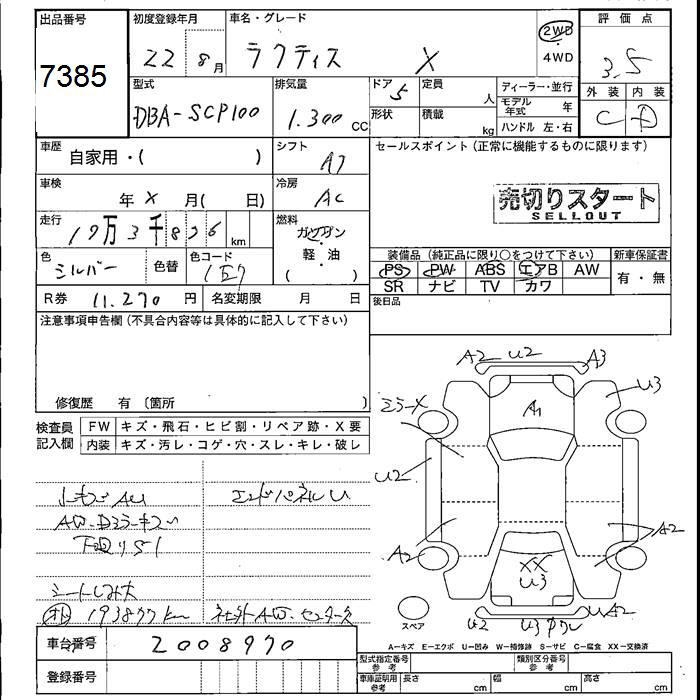 出品番号 初度登録年月 車名・グレード 2WD 評価点
7385 22 8月 ラクティス X 4WD 3.5
型式 排気量 ドア 5 定員 人 ディーラー・並行 外装 内装
DBA-SCP100 1.300 CC 形状 積載 kg モデル年式 年 C D
ハンドル 左・右
車歴 自家用・( ) シフト AT セールスポイント(正常に機能するものに限ります)
車検 年 X 月( 日) 冷房 AC 売切りスタート
SELLOUT
走行 19万3千826km 燃料 ガソリン
軽・油
( )
色 シルバー 色替 色コード 1E7 装備品(純正品に限り○をつけて下さい) 新車保証書
PS PW ABS エアB AW 有・無
SR ナビ TV カワ
R券 11.270円 名変期限 月 日 後日品
注意事項申告欄(不具合内容等は具体的に記入して下さい)
修復歴 有 〔箇所 〕
検査員記入欄 FW キズ・飛石・ヒビ割・リペア跡・X要
内装 キズ・汚レ・コゲ・穴・スレ・キレ・破レ
A2 U2 A3
ミラーX U3
A1
U2
エンドパネルU
A2 A2
XX
U3
シートしみ大
193877km
U2 U3 UA2
スペア
車台番号 2008970
A=キズ E=エクボ U=凹み W=補修跡 S=サビ C=腐食 XX=交換済
登録番号
型式指定番号参考 類別区分番号参考
車庫証明用参考 長さ cm 幅 cm 高さ cm